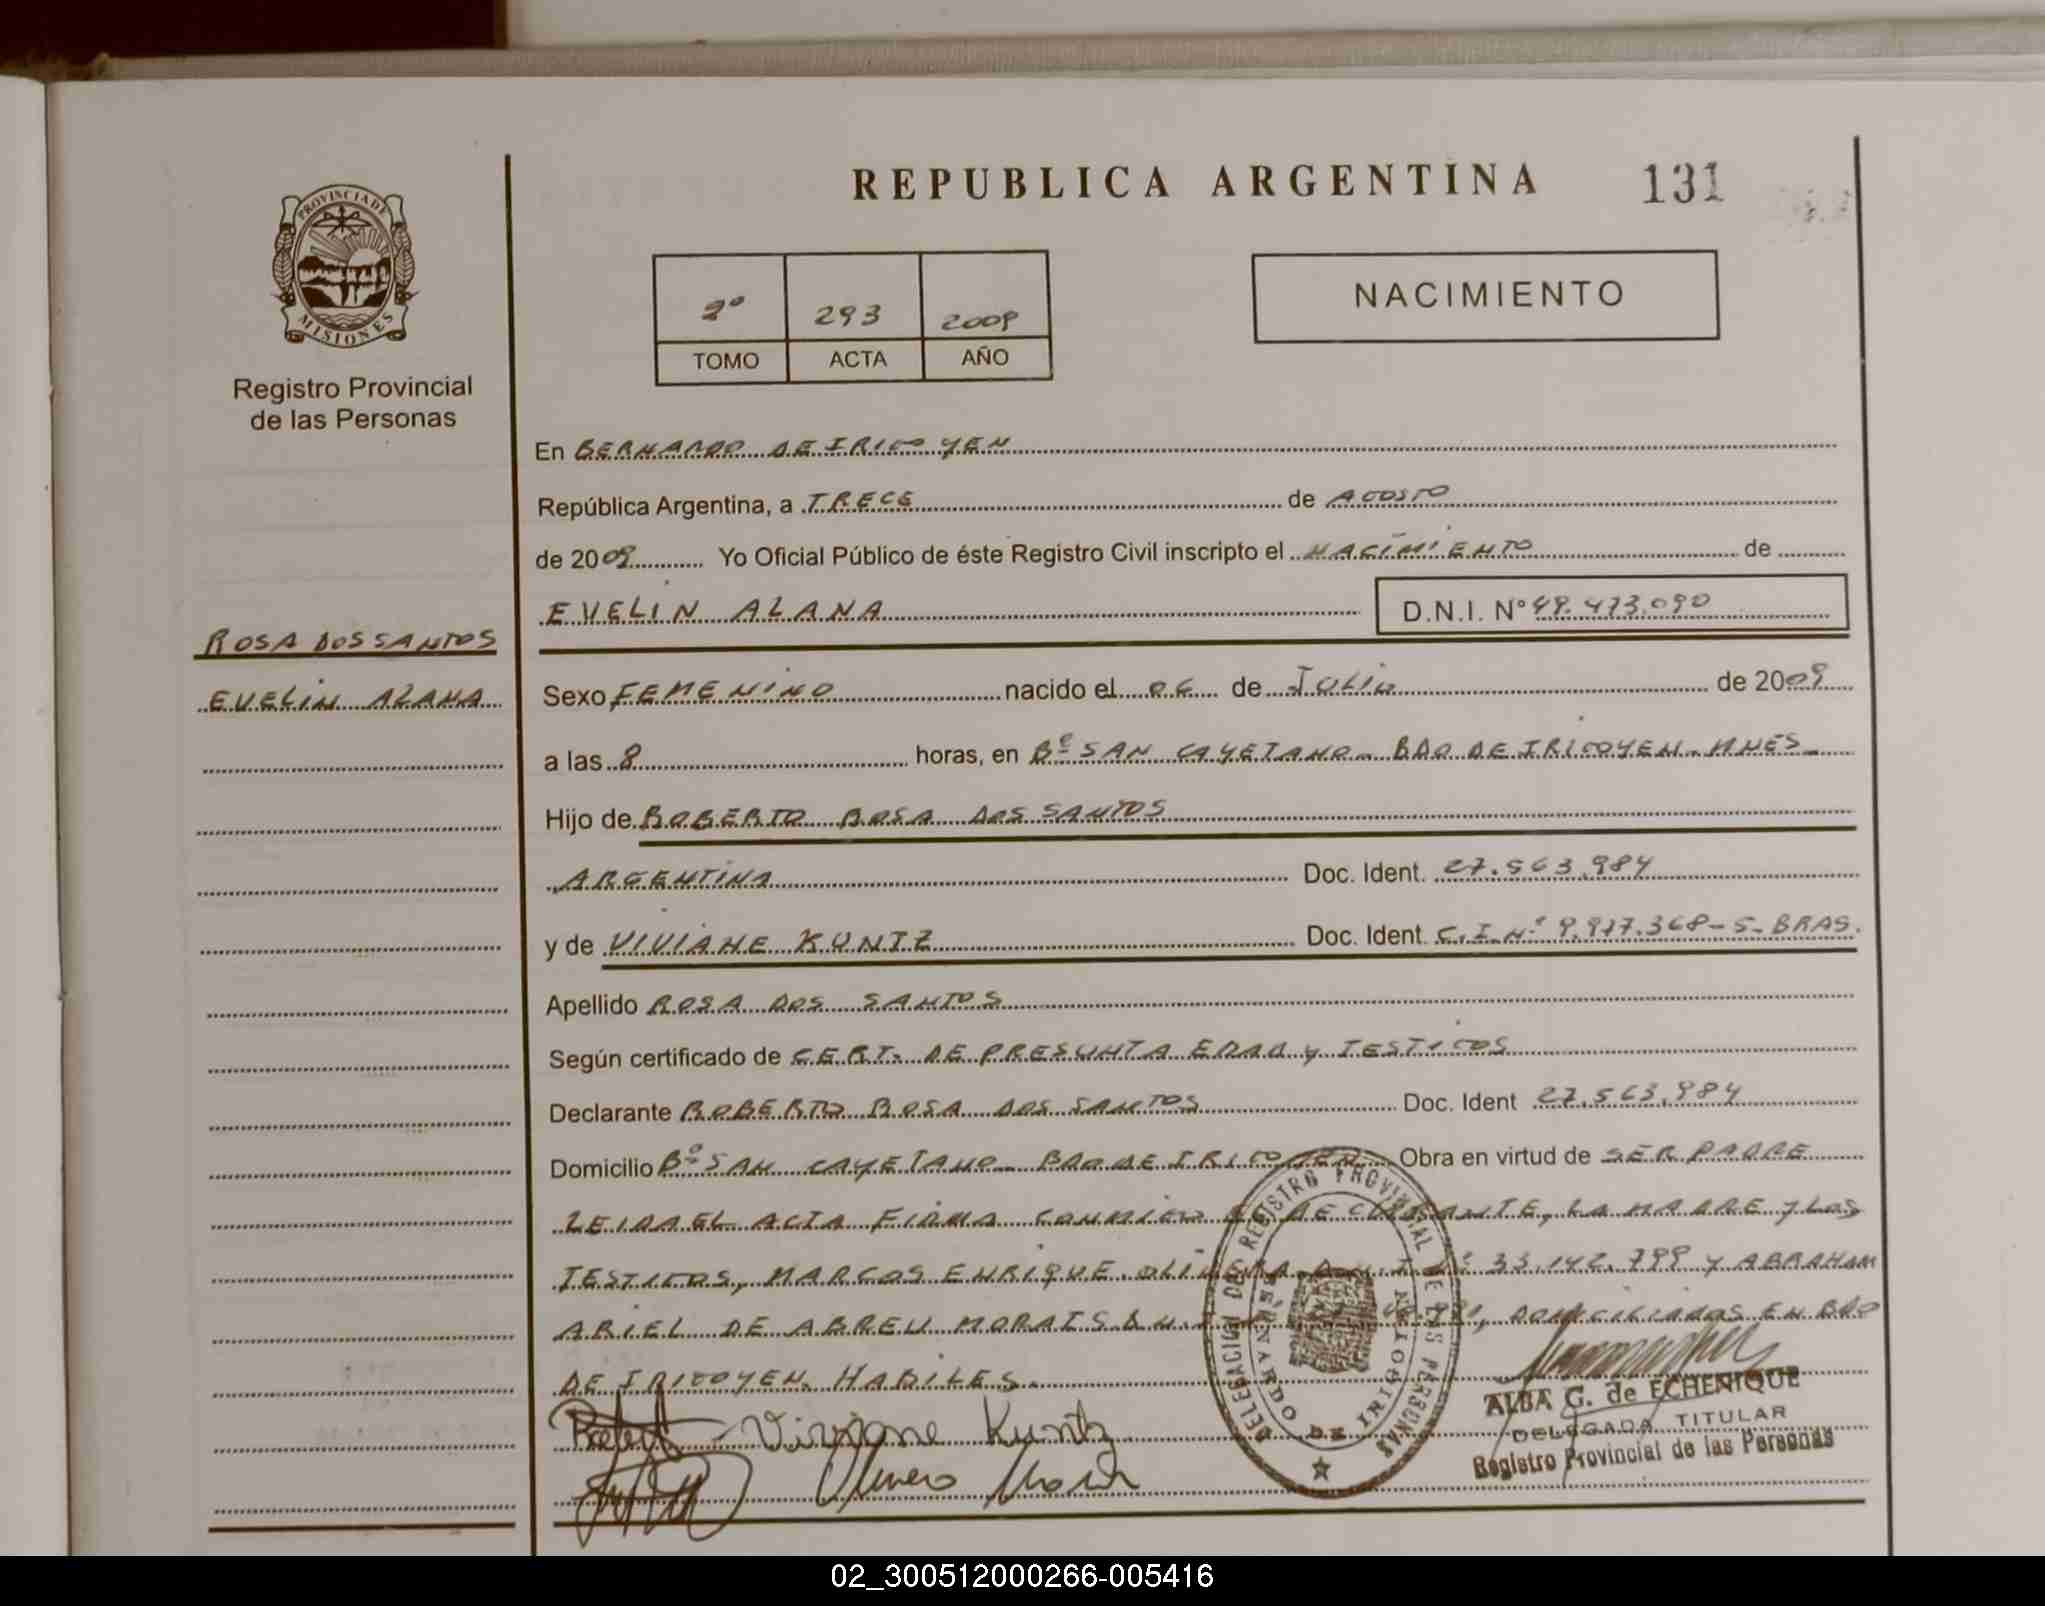 REPUBLICA ARGENTINA 131
PROVINCIA DE
MISIONES
Registro Provincial
de las Personas
2º 293 2009
TOMO ACTA AÑO
NACIMIENTO
En BERNARDO DE IRIGOYEN
República Argentina, a TRECE de AGOSTO
de 2009 Yo Oficial Público de éste Registro Civil inscripto el NACIMIENTO de
EVELIN ALANA D.N.I. Nº 49.473.090
ROSA DOS SANTOS
EVELIN ALANA
Sexo FEMENINO nacido el 06 de JULIO de 2009
a las 8 horas, en Bº SAN CAYETANO - BDO DE IRIGOYEN - MNES -
Hijo de ROBERTO ROSA DOS SANTOS
ARGENTINA Doc. Ident. 27.563.984
y de VIVIANE KUNTZ Doc. Ident. C.I.Nº 9.977.368-5- BRAS.
Apellido ROSA DOS SANTOS
Según certificado de CERT. DE PRESUNTA EDAD y TESTIGOS
Declarante ROBERTO ROSA DOS SANTOS Doc. Ident 27.563.984
Domicilio Bº SAN CAYETANO - BDO DE IRIGOYEN - Obra en virtud de SER PADRE
LEIDA EL ACTA FIRMA CONMIGO EL DECLARANTE, LA MADRE y LOS
TESTIGOS, MARCOS ENRIQUE OLIVERA D.N.I. Nº 33.142.799 y ABRAHAM
ARIEL DE ABREU MORAIS D.N.I. DOMICILIADOS EN BDO
DE IRIGOYEN. HABILES.
Viviane Kuntz
DELEGACION DEL REGISTRO PROVINCIAL DE LAS PERSONAS
BERNARDO DE IRIGOYEN
ALBA G. de ECHENIQUE
DELEGADA TITULAR
Registro Provincial de las Personas
02_300512000266-005416